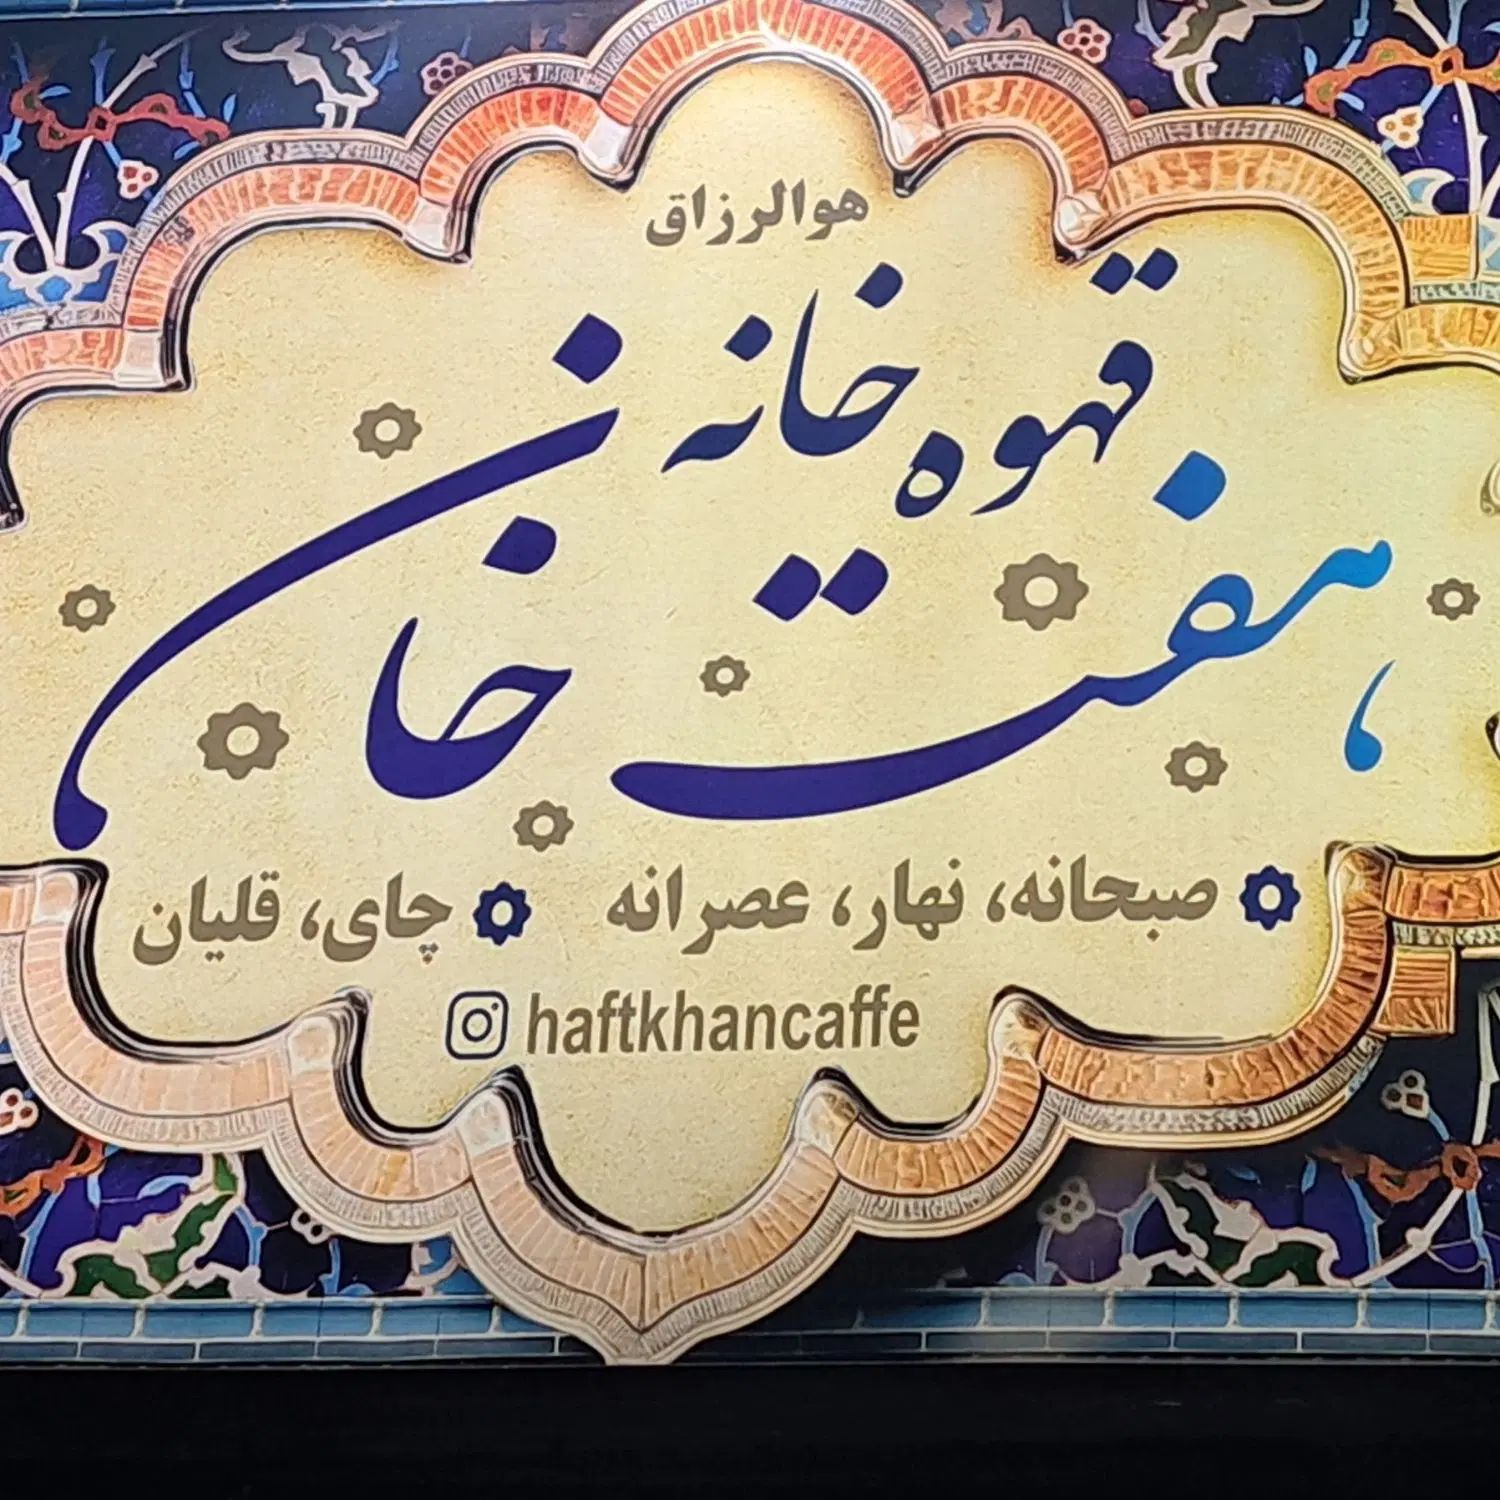 هوالرزاق
قهوه خانه
هفت خان
صبحانه، نهار، عصرانه چای، قلیان
haftkhancaffe